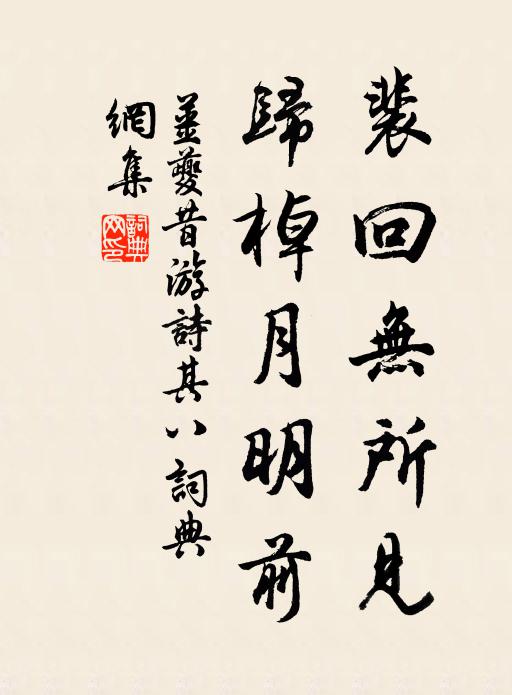 裴回無所見
歸棹月明前
姜夔昔游詩其八詞典
網集
詞典
网印